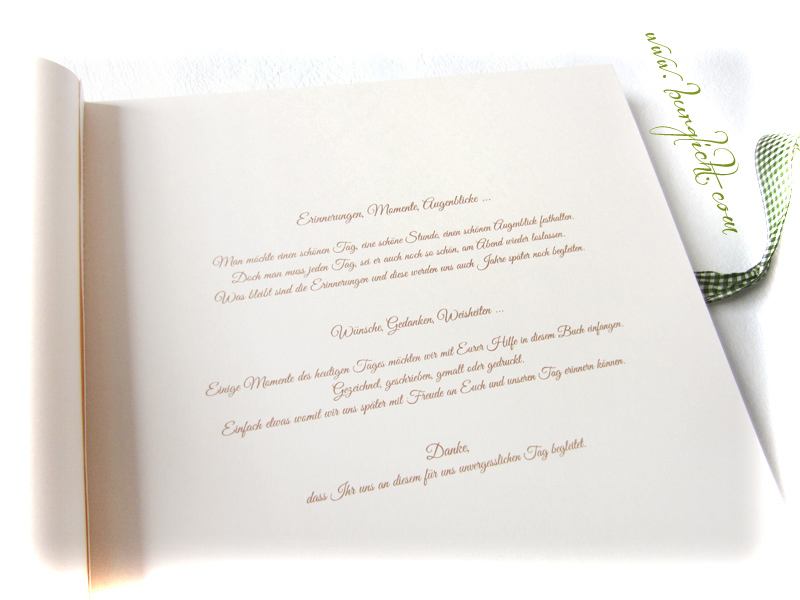 Erinnerungen, Momente, Augenblicke ...
Man möchte einen schönen Tag, eine schöne Stunde, einen schönen Augenblick festhalten.
Doch man muss jeden Tag, sei er auch noch so schön, am Abend wieder loslassen.
Was bleibt sind die Erinnerungen und diese werden uns auch Jahre später noch begleiten.
Wünsche, Gedanken, Weisheiten ...
Einige Momente des heutigen Tages möchten wir mit Eurer Hilfe in diesem Buch einfangen.
Gezeichnet, geschrieben, gemalt oder gedruckt.
Einfach etwas womit wir uns später mit Freude an Euch und unseren Tag erinnern können.
Danke,
dass Ihr uns an diesem für uns unvergesslichen Tag begleitet.
www.burglicht.com